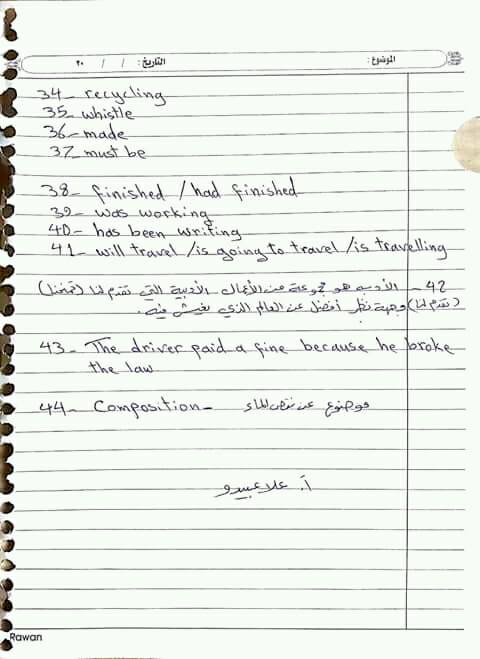 الموضوع :
التاريخ : / / ٢٠
34- recycling
35- whistle
36- made
37- must be
38- finished / had finished
39- was working
40- has been writing
41- will travel / is going to travel / is travelling
42 - الأدب هو مجموعة من الأعمال الأدبية التي تقدم لنا (تمنحنا)
(تقدم لنا) وجهة نظر أفضل عن العالم الذي نعيش فيه .
43- The driver paid a fine because he broke
the law
44- Composition- موضوع عن نقص الماء
أ. علا عبيدو
Rawan